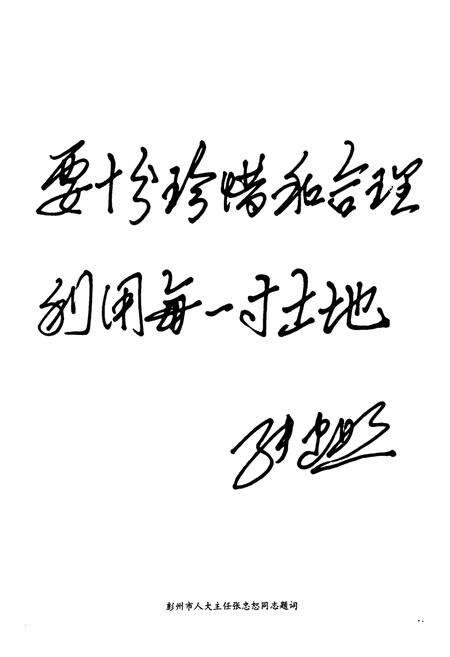 要十分珍惜和合理
利用每一寸土地
张忠恕
彭州市人大主任张忠恕同志题词